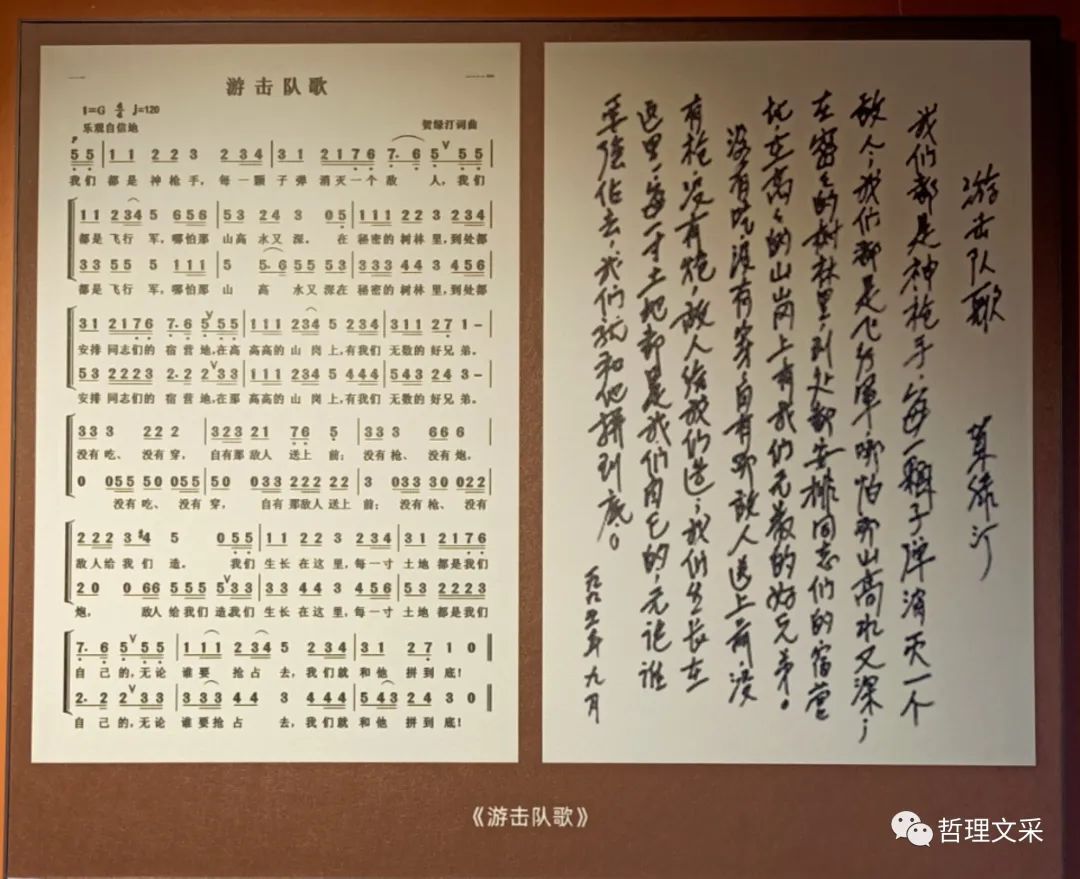 游击队歌
1=G 4/4 ♩=120
乐观自信地
贺绿汀词曲
P
5 5 | 1 1 2 2 3 2 3 4 | 3 1 2 1 7 6 7· 6 5 ∨ 5 5 |
我们 都是 神枪手, 每一颗 子弹 消灭一个 敌 人, 我们
1 1 2 3 4 5 6 5 6 | 5 3 2 4 3 0 5 | 1 1 1 2 2 3 2 3 4 |
都是 飞行 军, 哪怕那 山高 水又 深。 在 秘密的 树林 里, 到处都
3 3 5 5 5 1 1 1 | 5 5· 6 5 5 5 3 | 3 3 3 4 4 3 4 5 6 |
都是 飞行 军, 哪怕那 山 高 水又 深在 秘密的 树林 里, 到处都
3 1 2 1 7 6 7· 6 5 ∨ 5 5 | 1 1 1 2 3 4 5 2 3 4 | 3 1 1 2 7 1 - |
安排 同志们的 宿 营 地, 在高 高高的 山 岗 上, 有我们 无数的 好兄 弟。
5 3 2 2 2 3 2· 2 2 ∨ 3 3 | 1 1 1 2 3 4 5 4 4 4 | 5 4 3 2 4 3 - |
安排 同志们的 宿 营 地, 在那 高高的 山 岗 上, 有我们 无数的 好兄 弟。
3 3 3 2 2 2 | 3 2 3 2 1 7 6 5 | 3 3 3 6 6 6 |
没有 吃、 没有 穿, 自有那 敌人 送上 前; 没有 枪、 没有 炮,
0 0 5 5 5 0 0 5 5 | 5 0 0 3 3 2 2 2 2 2 | 2 0 3 3 3 0 0 2 2 |
没有 吃、 没有 穿, 自有 那敌人 送上 前; 没有 枪、 没有
2 2 2 3 #4 5 0 5 5 | 1 1 2 2 3 2 3 4 | 3 1 2 1 7 6 |
敌人 给 我们 造。 我们 生长 在这 里, 每一寸 土地 都是我们
2 0 0 6 6 5 5 5 ∨ 3 3 | 3 3 4 4 3 4 5 6 | 5 3 2 2 2 3 |
炮, 敌人 给 我们 造我们 生长 在这 里, 每一寸 土地 都是我们
7· 6 5 ∨ 5 5 | 1 1 1 2 3 4 5 2 3 4 | 3 1 2 7 1 0 ‖
自 己 的, 无论 谁要 抢占 去, 我们就 和他 拼到 底!
2· 2 2 ∨ 3 3 | 3 3 3 4 4 3 4 4 4 | 5 4 3 2 4 3 0 ‖
自 己 的, 无论 谁要抢 占 去, 我们就 和他 拼到 底!
游击队歌 贺绿汀
我们都是神枪手,每一颗子弹消灭一个
敌人,我们都是飞行军哪怕那山高水又深;
在密密的树林里,到处都安排同志们的宿营
地在高高的山岗上有我们无数的好兄弟。
没有吃,没有穿,自有那敌人送上前,没
有枪,没有炮,敌人给我们造,我们生长在
这里,每一寸土地都是我们自己的,无论谁
要强占去,我们就和他拼到底。
一九九五年九月
《游击队歌》
哲理文采